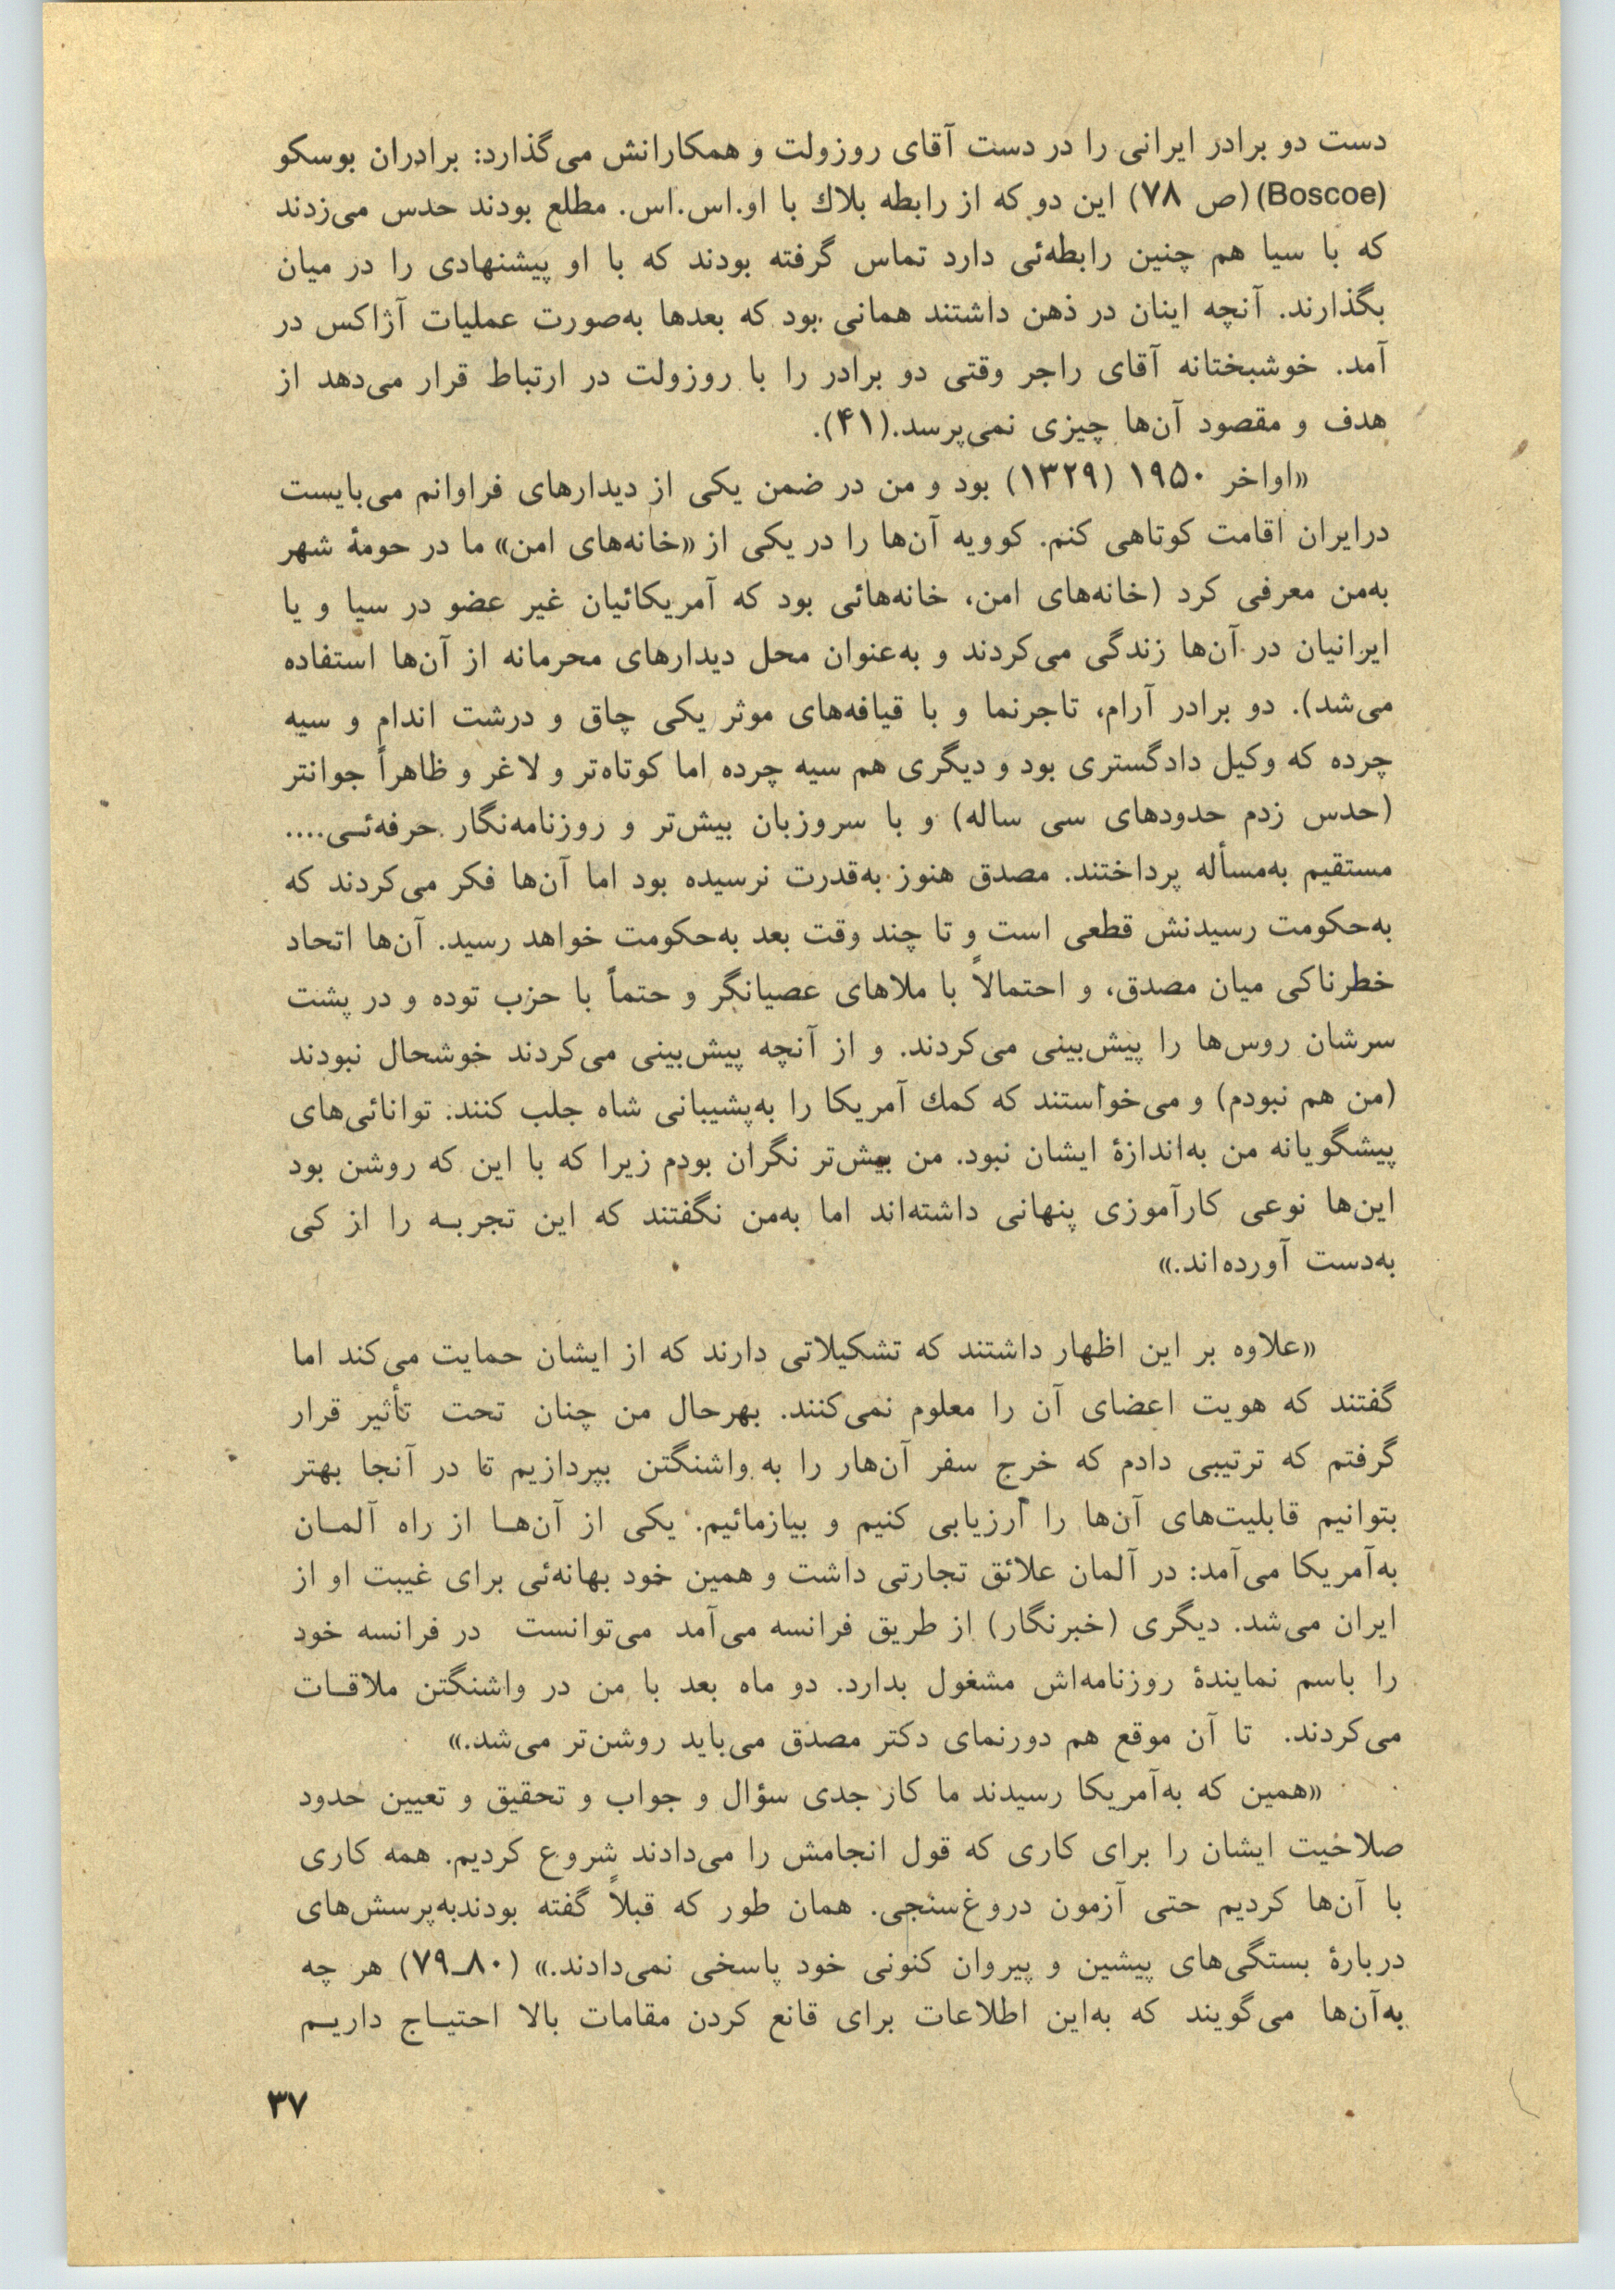 دست دو برادر ایرانی را در دست آقای روزولت و همکارانش می‌گذارد: برادران بوسکو
(Boscoe) (ص ۷۸) این دو که از رابطه بلاك با او.اس.اس. مطلع بودند حدس می‌زدند
که با سیا هم چنین رابطه‌ئی دارد تماس گرفته بودند که با او پیشنهادی را در میان
بگذارند. آنچه اینان در ذهن داشتند همانی بود که بعدها به‌صورت عملیات آژاکس در
آمد. خوشبختانه آقای راجر وقتی دو برادر را با روزولت در ارتباط قرار می‌دهد از
هدف و مقصود آن‌ها چیزی نمی‌پرسد.(۴۱).
«اواخر ۱۹۵۰ (۱۳۲۹) بود و من در ضمن یکی از دیدارهای فراوانم می‌بایست
درایران اقامت کوتاهی کنم. کوویه آن‌ها را در یکی از «خانه‌های امن» ما در حومهٔ شهر
به‌من معرفی کرد (خانه‌های امن، خانه‌هائی بود که آمریکائیان غیر عضو در سیا و یا
ایرانیان در آن‌ها زندگی می‌کردند و به‌عنوان محل دیدارهای محرمانه از آن‌ها استفاده
می‌شد). دو برادر آرام، تاجرنما و با قیافه‌های موثر یکی چاق و درشت اندام و سیه
چرده که وکیل دادگستری بود و دیگری هم سیه چرده اما کوتاه‌تر و لاغر و ظاهراً جوانتر
(حدس زدم حدودهای سی ساله) و با سروزبان بیش‌تر و روزنامه‌نگار حرفه‌ئـی....
مستقیم به‌مسأله پرداختند. مصدق هنوز به‌قدرت نرسیده بود اما آن‌ها فکر می‌کردند که
به‌حکومت رسیدنش قطعی است و تا چند وقت بعد به‌حکومت خواهد رسید. آن‌ها اتحاد
خطرناکی میان مصدق، و احتمالاً با ملاهای عصیانگر و حتماً با حزب توده و در پشت
سرشان روس‌ها را پیش‌بینی می‌کردند. و از آنچه پیش‌بینی می‌کردند خوشحال نبودند
(من هم نبودم) و می‌خواستند که کمك آمریکا را به‌پشیبانی شاه جلب کنند: توانائی‌های
پیشگویانه من به‌اندازهٔ ایشان نبود. من بیش‌تر نگران بودم زیرا که با این که روشن بود
این‌ها نوعی کارآموزی پنهانی داشته‌اند اما به‌من نگفتند که این تجربـه را از کی
به‌دست آورده‌اند.»
«علاوه بر این اظهار داشتند که تشکیلاتی دارند که از ایشان حمایت می‌کند اما
گفتند که هویت اعضای آن را معلوم نمی‌کنند. بهرحال من چنان تحت تأثیر قرار
گرفتم که ترتیبی دادم که خرج سفر آن‌هار را به واشنگتن بپردازیم تا در آنجا بهتر
بتوانیم قابلیت‌های آن‌ها را ارزیابی کنیم و بیازمائیم. یکی از آن‌هـا از راه آلمـان
به‌آمریکا می‌آمد: در آلمان علائق تجارتی داشت و همین خود بهانه‌ئی برای غیبت او از
ایران می‌شد. دیگری (خبرنگار) از طریق فرانسه می‌آمد می‌توانست در فرانسه خود
را باسم نمایندهٔ روزنامه‌اش مشغول بدارد. دو ماه بعد با من در واشنگتن ملاقـات
می‌کردند. تا آن موقع هم دورنمای دکتر مصدق می‌باید روشن‌تر می‌شد.»
«همین که به‌آمریکا رسیدند ما کار جدی سؤال و جواب و تحقیق و تعیین حدود
صلاحیت ایشان را برای کاری که قول انجامش را می‌دادند شروع کردیم. همه کاری
با آن‌ها کردیم حتی آزمون دروغ‌سنجی. همان طور که قبلاً گفته بودندبه‌پرسش‌های
دربارهٔ بستگی‌های پیشین و پیروان کنونی خود پاسخی نمی‌دادند.» (۸۰ـ۷۹) هر چه
به‌آن‌ها می‌گویند که به‌این اطلاعات برای قانع کردن مقامات بالا احتیـاج داریـم
۳۷